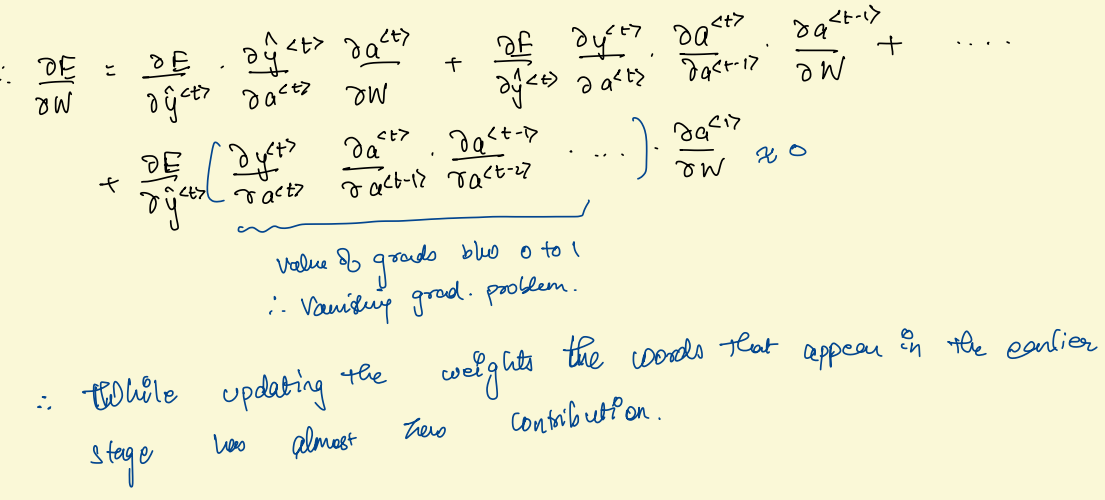 ∴ ∂E/∂W = ∂E/∂ŷ<t> · ∂ŷ<t>/∂a<t> ∂a<t>/∂W + ∂E/∂ŷ<t> ∂y<t>/∂a<t> · ∂a<t>/∂a<t-1> · ∂a<t-1>/∂W + ....
+ ∂E/∂ŷ<t> ( ∂y<t>/∂a<t> ∂a<t>/∂a<t-1> · ∂a<t-1>/∂a<t-2> · ... ) · ∂a<1>/∂W ≈ 0
value of grads b/w 0 to 1
∴ Vanishing grad. problem.
∴ While updating the weights the words that appear in the earlier
stage has almost zero contribution.